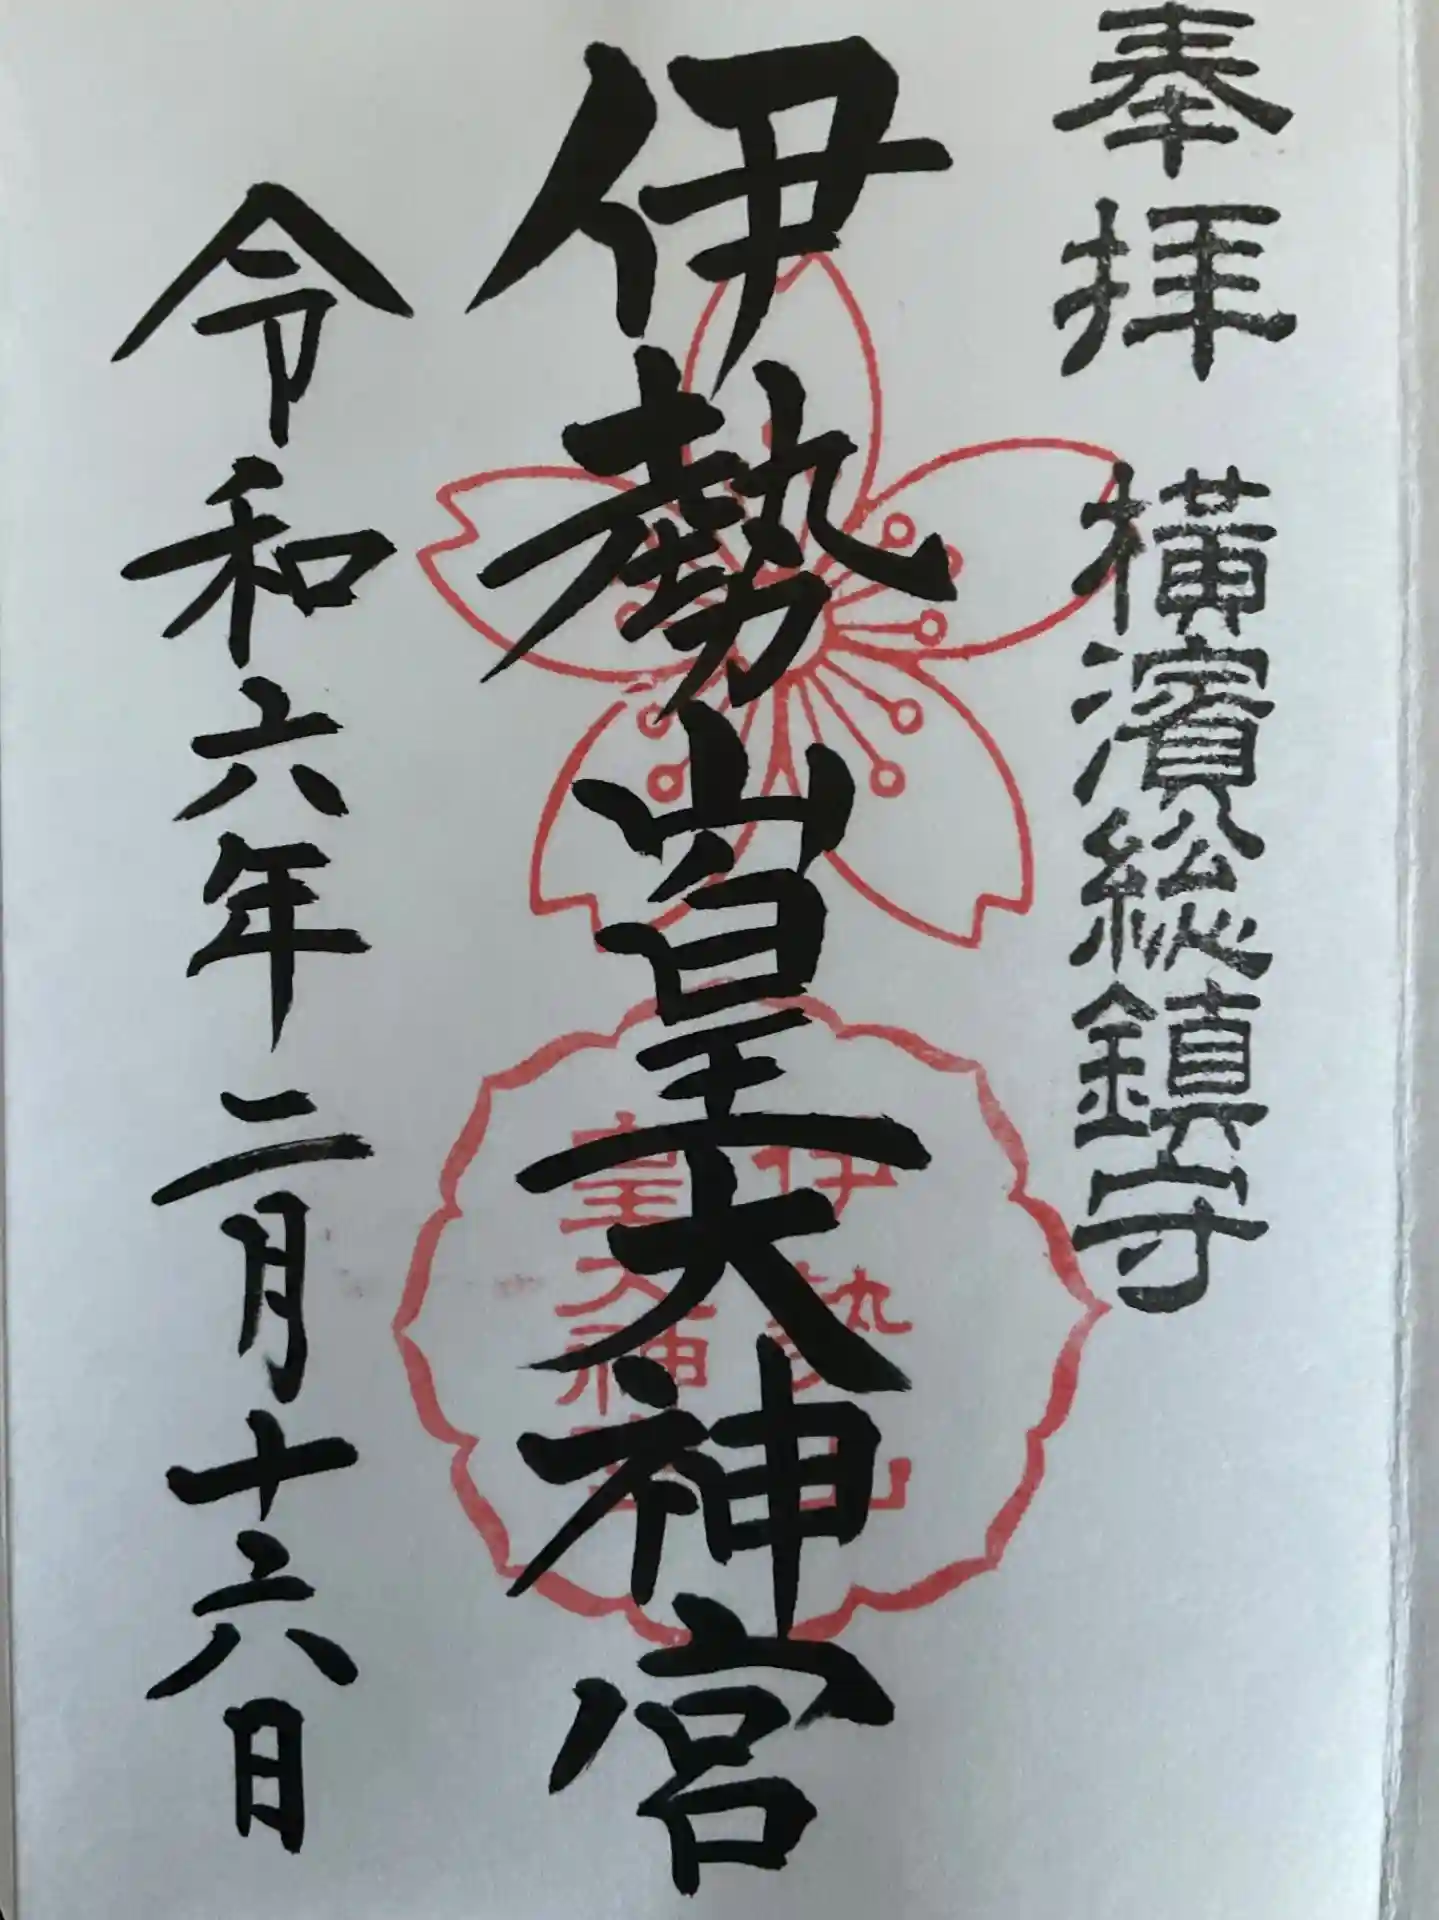 奉拝 横濱総鎮守
伊勢山皇大神宮
伊勢山
皇大神宮
令和六年二月十六日